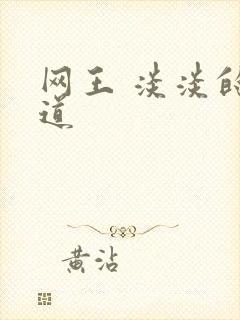 网王 淡淡的
道
黄沾